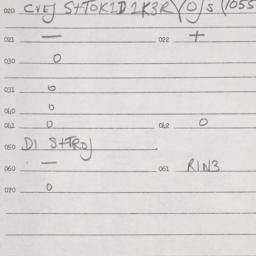 020 CVEJ S+TOK1D1K3R YOJS (1055
021 — 022 +
030 0
031 0
040 0
041 0 042 0
050 DI S+TROJ
060 — 061 RIN3
070 0